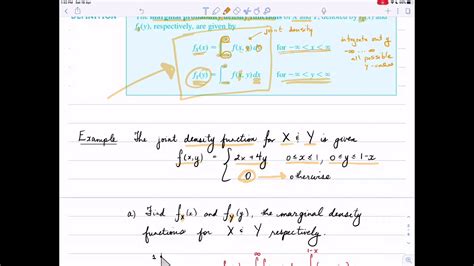 DEFINITION The marginal probability density functions of X and Y, denoted by and
fY(y), respectively, are given by
fX(x) = ∫ f(x, y) dy for −∞ < x < ∞
joint density
integrate out y
-∞ ... ∞
all possible
y-values
fY(y) = ∫ f(x, y) dx for −∞ < y < ∞
Example The joint density function for X & Y is given
f(x,y) = { 2x + 4y 0≤x≤1, 0≤y≤1-x
0 otherwise
a) Find fX(x) and fY(y), the marginal density
functions for X & Y respectively.
1
∞
1-x